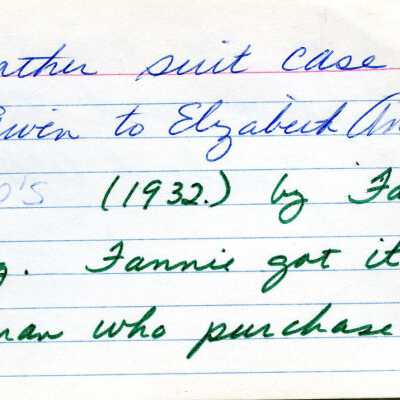 ather suit case
Given to Elizabeth An
0's (1932.) by Fa
g. Fannie got it
man who purchase